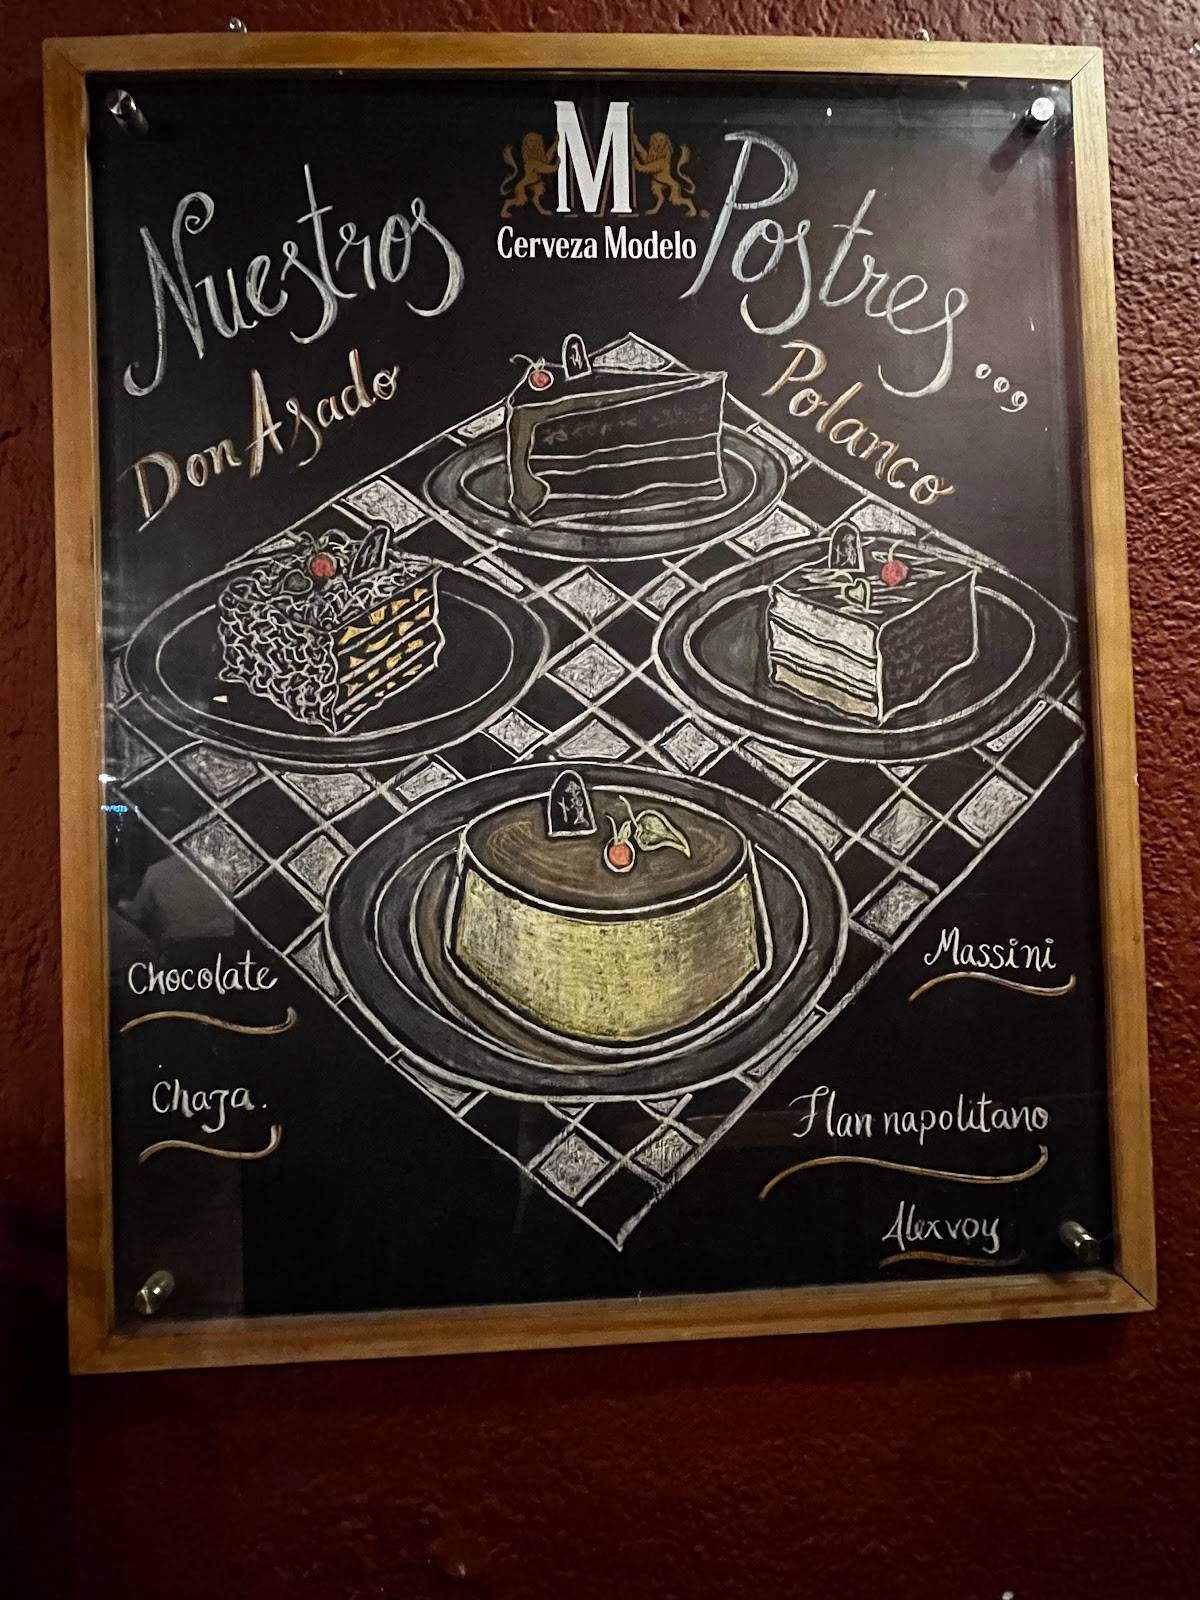 M
Cerveza Modelo
Nuestros Postres...
Don Asado Polanco
Chocolate
Massini
Chaja.
Flan napolitano
Alexvoy